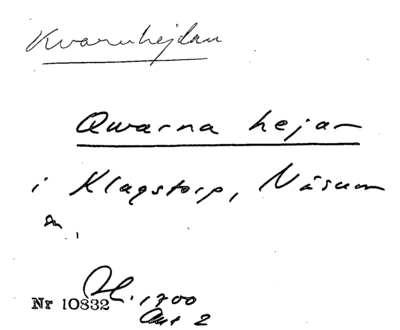 Kvarnhejdan
Qwarna hejar
i Klagstorp, Näsum
sn.
Nr 10832 Sk. 1700
Ant 2